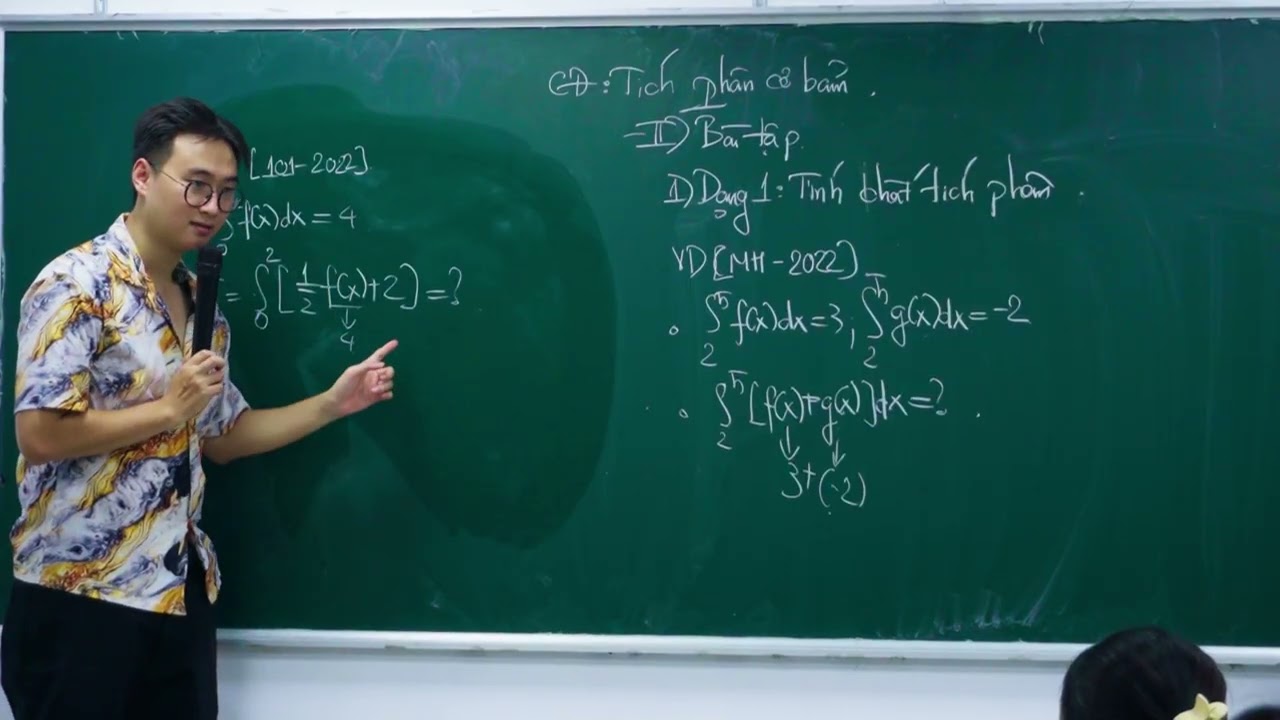 [101-2022]
f(x)dx = 4
= ∫₀² [1/2 f(x)+2] = ?
↓
4
CĐ: Tích phân cơ bản.
II) Bài tập
1) Dạng 1: Tính chất tích phân.
VD [MH - 2022]
∫₂⁵ f(x)dx = 3; ∫₂⁵ g(x)dx = -2
∫₂⁵ [f(x)+g(x)]dx = ?
↓ ↓
3+(-2)